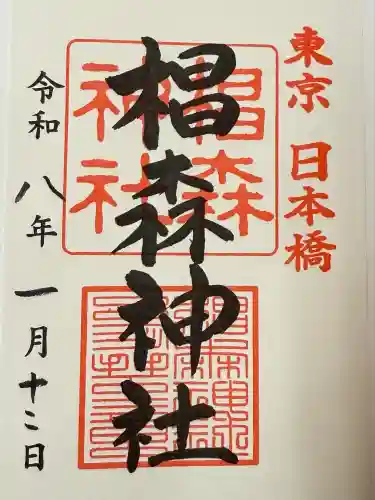 東京 日本橋
椙森神社
椙森
神社
令和八年一月十二日